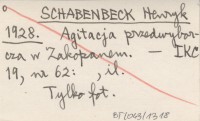 SCHABENBECK Henryk
1928. Agitacja przedwybor-
cza w Zakopanem. — IKC
19, nr 62: , il.
Tylko fot.
BT/043/1318